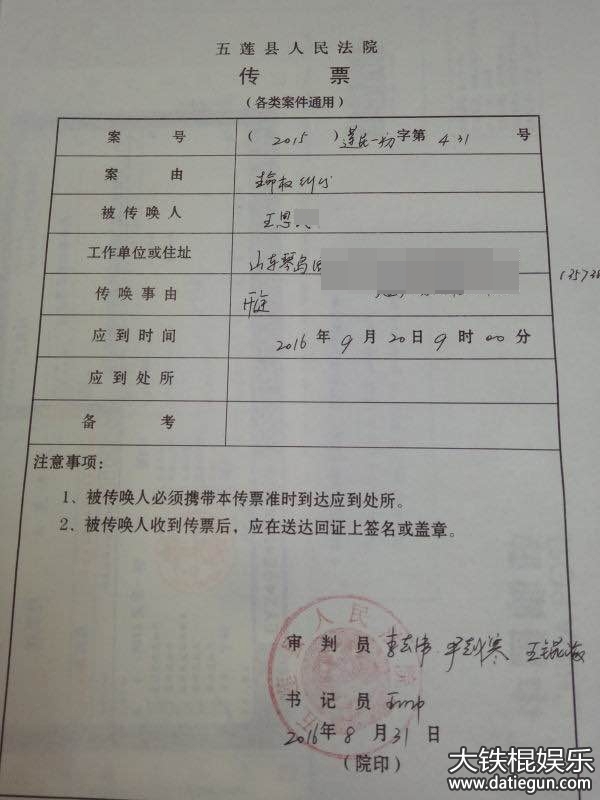 五莲县人民法院
传 票
(各类案件通用)
案 号 ( 2015 )莲民一初字第 431 号
案 由 生命权纠纷
被传唤人 王恩
工作单位或住址 山东琴岛
传唤事由 开庭
应到时间 2016 年 9 月 20 日 9 时 00 分
应到处所
备 考
注意事项:
1、被传唤人必须携带本传票准时到达应到处所。
2、被传唤人收到传票后,应在送达回证上签名或盖章。
审 判 员
书 记 员
2016年 8 月 31 日
(院印)
大铁棍娱乐
www.datiegun.com